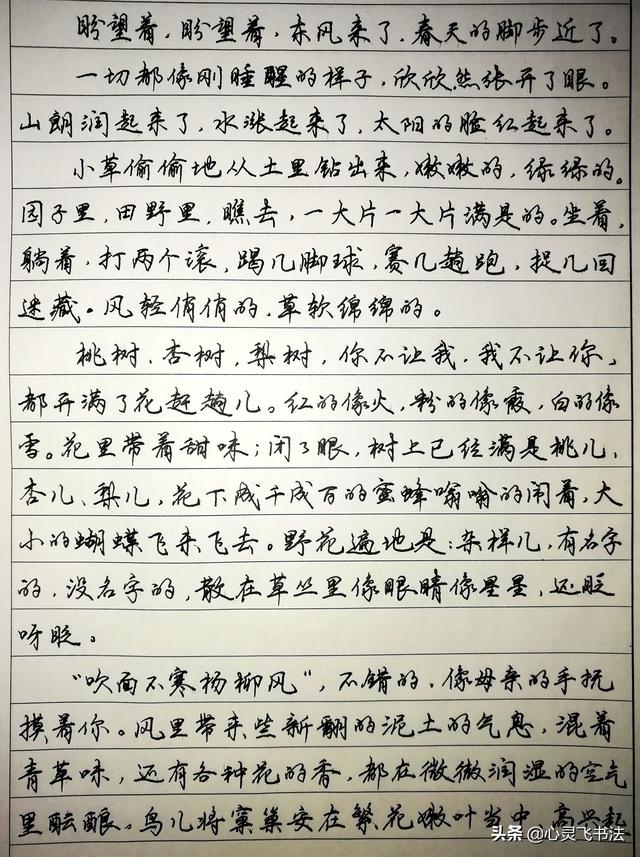 盼望着，盼望着，东风来了，春天的脚步近了。
一切都像刚睡醒的样子，欣欣然张开了眼。
山朗润起来了，水涨起来了，太阳的脸红起来了。
小草偷偷地从土里钻出来，嫩嫩的，绿绿的。
园子里，田野里，瞧去，一大片一大片满是的。坐着，
躺着，打两个滚，踢几脚球，赛几趟跑，捉几回
迷藏。风轻俏俏的，草软绵绵的。
桃树、杏树，梨树，你不让我，我不让你，
都开满了花赶趟儿。红的像火，粉的像霞，白的像
雪。花里带着甜味；闭了眼，树上已经满是桃儿、
杏儿、梨儿，花下成千成百的蜜蜂嗡嗡的闹着，大
小的蝴蝶飞来飞去。野花遍地是：杂样儿，有名字
的，没名字的，散在草丛里像眼睛像星星，还眨
呀眨。
“吹面不寒杨柳风”，不错的，像母亲的手抚
摸着你。风里带来些新翻的泥土的气息，混着
青草味，还有各种花的香，都在微微润湿的空气
里酝酿。鸟儿将窠巢安在繁花嫩叶当中，高兴起
头条@心灵飞书法